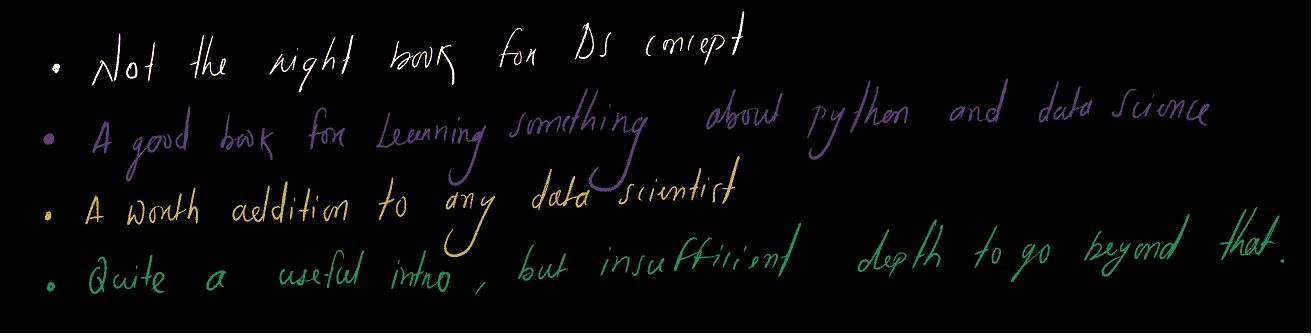 • Not the right book for DS concept
• A good book for Learning something about python and data science
• A worth addition to any data scientist
• Quite a useful intro, but insufficient depth to go beyond that.